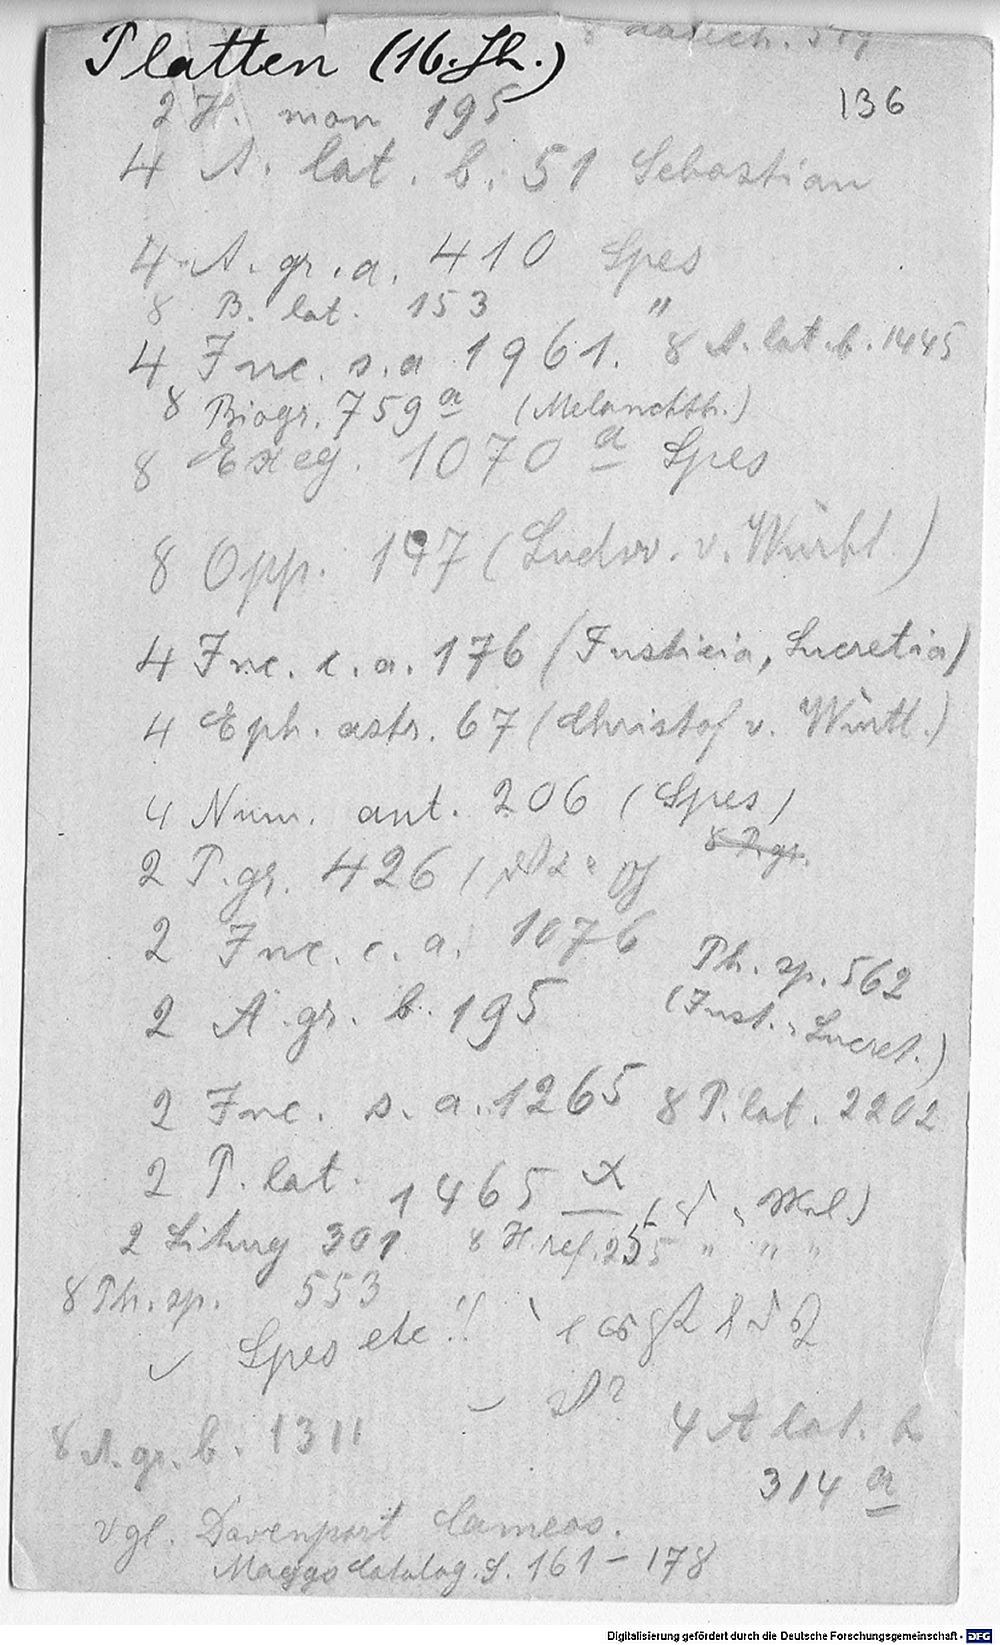 Platten (16. Jh.)
136
2 H. mon 195
4 A. lat. b. 51 Sebastian
4 A. gr. a. 410 Spes
8 B. lat. 153 "
4 Inc. s. a 1961. 8 A. lat. b. 1445
8 Biogr. 759 a (Melanchth.)
8 Exeg. 1070 a Spes
8 Opp. 197 (Ludw. v. Württ.)
4 Inc. c. a. 176 (Justicia, Lucretia)
4 Eph. astr. 67 (Christof v. Württ.)
4 Num. ant. 206 (Spes)
8 P. gr.
2 P. gr. 426
2 Inc. c. a. 1076
Ph. sp. 562
2 A. gr. b. 195
(Just., Lucret.)
2 Inc. s. a. 1265 8 P. lat. 2202
2 P. lat. 1465
2 Liturg 301 8 H. ref. 255 " " "
8 Ph. sp. 553
Spes etc !!
4 A lat. b
8 A. gr. b. 1311
314 a
vgl. Davenport Cameos.
Maggs Catalog. S. 161 - 178
Digitalisierung gefördert durch die Deutsche Forschungsgemeinschaft - DFG